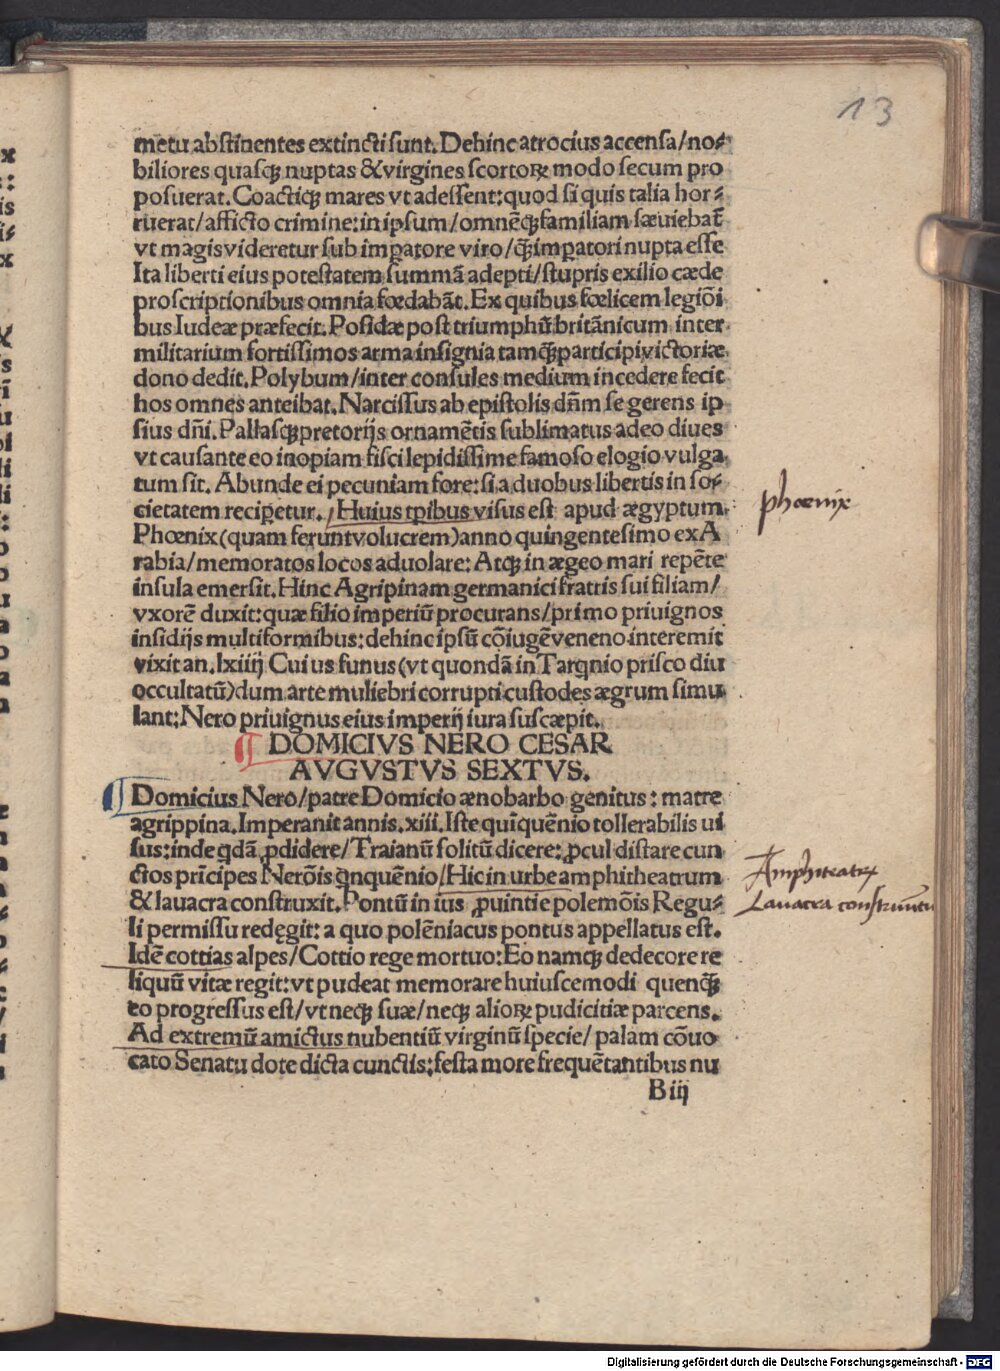 13
metu abstinentes extincti sunt. Dehinc atrocius accensa/no⸗
biliores quasqꝫ nuptas &virgines scortoꝝ modo secum pro
posuerat. Coactiqꝫ mares vt adessent: quod si quis talia hor⸗
ruerat/afficto crimine: in ipsum/omnēqꝫ familiam sæuiebat̄
vt magis videretur sub imꝑatore viro/q̃ꝫ imꝑatori nupta esse
Ita liberti eius potestatem summā adepti/stupris exilio cæde
proscriptionibus omnia fœdabāt. Ex quibus fœlicem legiōi
bus Iudeæ præfecit. Posidæ post triumphū britānicum inter
militarium fortissimos arma insignia tamqꝫ participi victoriæ
dono dedit. Polybum/inter consules medium incedere fecit
hos omnes anteibat. Narcissus ab epistolis dn̄m se gerens ip
sius dn̄i. Pallasqꝫ pretorijs ornamētis sublimatus adeo diues
vt causante eo inopiam fisci lepidissime famoso elogio vulga
tum sit. Abunde ei pecuniam fore: si a duobus libertis in so⸗
cietatem reciꝑetur. Huius tꝑibus visus est apud ægyptum
Phœnix (quam ferunt volucrem) anno quingentesimo ex A
rabia/memoratos locos aduolare: Atqꝫ in ægeo mari repēte
insula emersit. Hinc Agripinam germanici fratris sui filiam/
vxorē duxit: quæ filio imperiū procurans/primo priuignos
insidijs multiformibus: dehinc ipsū cōiugē veneno interemit
vixit an. lxiiij Cuius funus (vt quondā in Tarqnio prisco diu
occultatū) dum arte muliebri corrupti custodes ægrum simu
lant: Nero priuignus eius imperij iura suscæpit.
DOMICIVS NERO CESAR
AVGVSTVS SEXTVS.
Domicius Nero/patre Domicio ænobarbo genitus: matre
agrippina. Imperanit annis. xiii. Iste quīquēnio tollerabilis ui
sus: inde qdā ꝓdidere/Traianū solitū dicere: ꝓcul distare cun
ctos prīcipes Nerōis qnquēnio/Hic in urbe amphitheatrum
& lauacra construxit. Pontū in ius ꝓuintie polemōis Regu⸗
li permissu redęgit: a quo polēniacus pontus appellatus est.
Idē cottias alpes/Cottio rege mortuo: Eo namqꝫ dedecore re
liquū vitæ regit: vt pudeat memorare huiuscemodi quenqꝫ
eo progressus est/vt neqꝫ suæ/neqꝫ alioꝝ pudicitiæ parcens.
Ad extremū amictus nubentiū virginū specie/palam cōuo
cato Senatu dote dicta cunctis: festa more frequētantibus nu
B iij
phœnix
Amphiteatrū
Lavacra construūtu
Digitalisierung gefördert durch die Deutsche Forschungsgemeinschaft - DFG